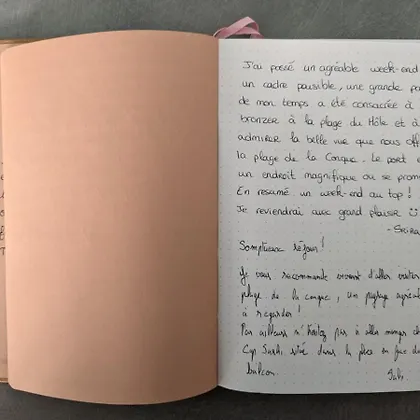 J'ai passé un agréable week-end
un cadre paisible, une grande pa
de mon temps a été consacrée à
bronzer à la plage du Môle et à
admirer la belle vue que nous off
la plage de la Conque. Le port e
un endroit magnifique ou se prome
En resumé un week-end au top !
Je reviendrai avec grand plaisir ☺
Somptueux séjour !
Je vous recommande vivement d'aller visiter
plage de la conque, un paysage agréab
à regarder !
Par ailleurs n'hésitez pas à aller manger ch
Cap situé dans la place en face du
balcon.